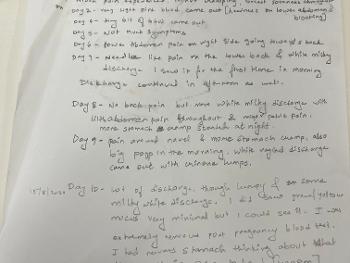 Day 2 - very light pink blood came out (heaviness in lower abdomen &
bloating)
Day 4 - tiny bit of blood came out
Day 5 - Not much symptoms
Day 6 - Lower Abdomen pain on right side going towards back
Day 7 - like pain on the lower back & white milky
discharge I saw it for the first time in morning
Discharge continued in afternoon as well.
Day 8 - No back pain but more white milky discharge with
abdomen pain throughout & pelvic pain.
more stomach cramp at night.
Day 9 - pain around navel & more stomach cramp, also
big poop in the morning. White discharge
came out with urine lumps.
Day 10 - Lot of discharge, though lumpy & some
milky white discharge. I did saw green/yellow
mucus very minimal but I could see it. I was
extremely nervous post pregnancy blood test.
I had nervous stomach thinking about what